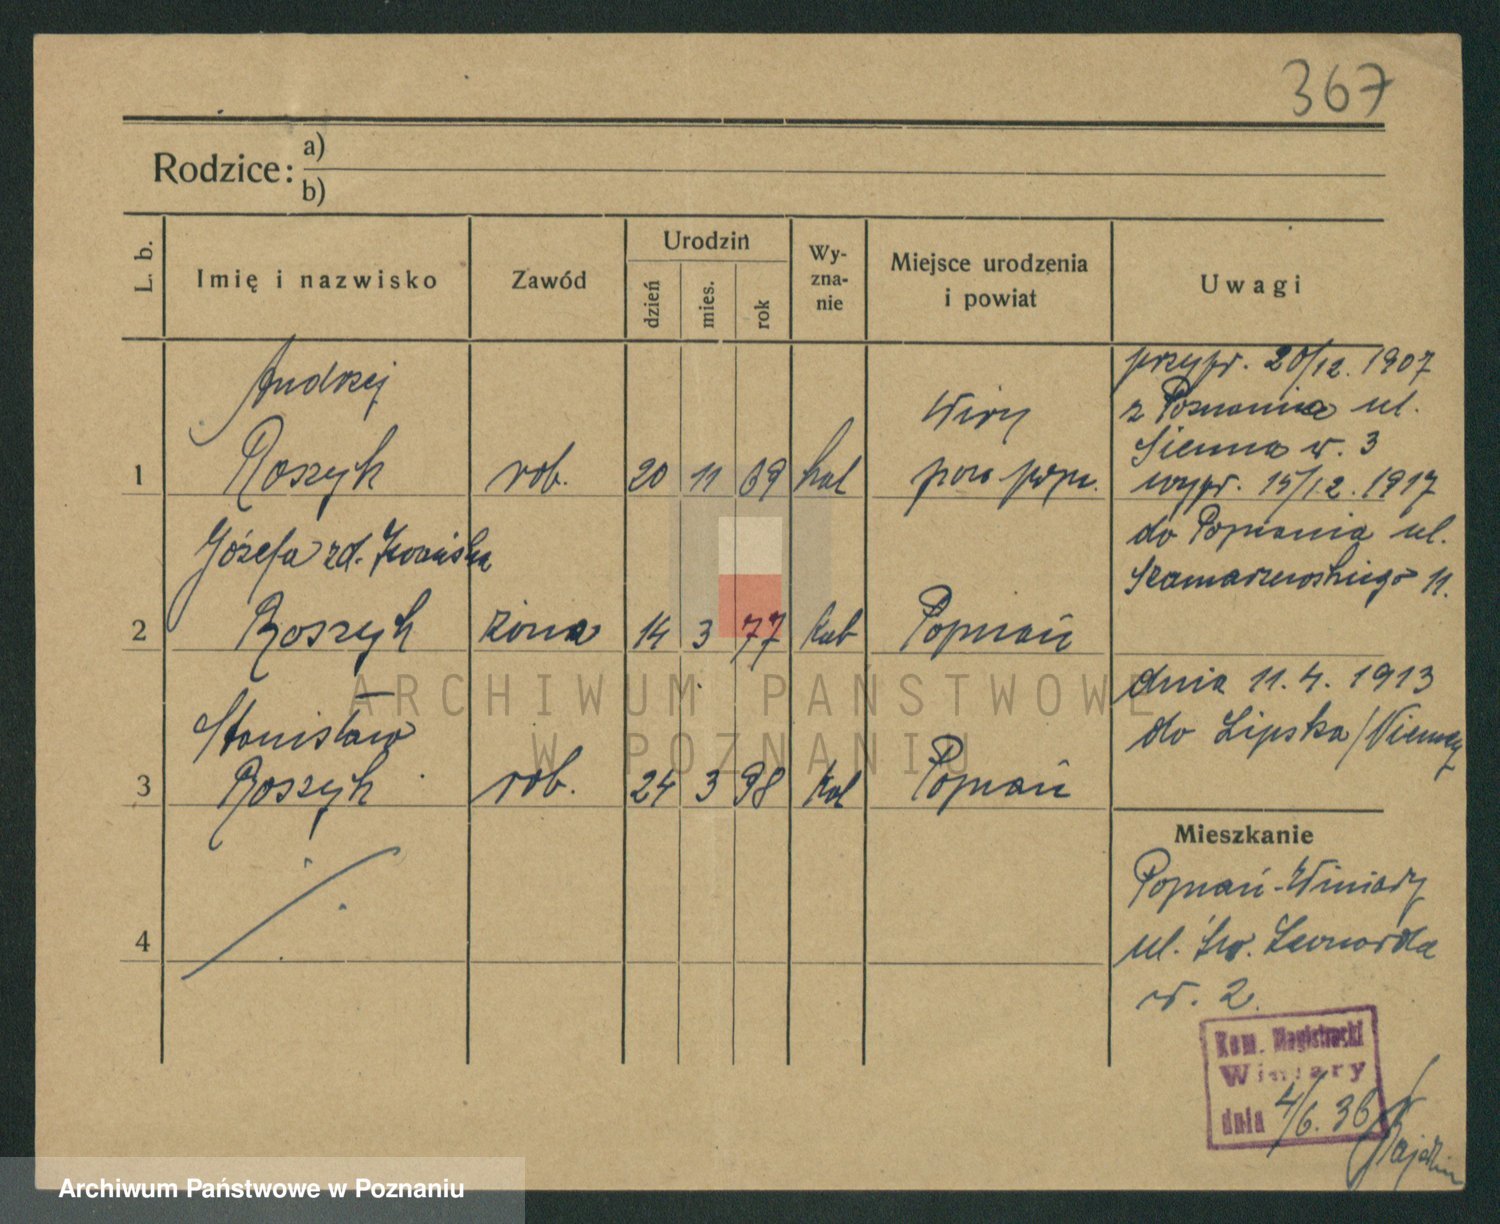 367
Rodzice: a)
b)
L. b.
Imię i nazwisko
Zawód
Urodzin
dzień
mies.
rok
Wy-
zna-
nie
Miejsce urodzenia
i powiat
Uwagi
1
Andrzej
Roszyk
rob.
20 11 69
kat
Wiry
pow
przypr. 20/12. 1907
z Poznania ul.
Sienna nr. 3
wypr. 15/12. 1917
do Poznania ul.
Szamarzewskiego 11.
2
Józefa zd. Iwańska
Roszyk
żona
14 3 77
kat
Poznań
3
Stanisław
Roszyk
rob.
24 3 98
kat
Poznań
dnia 11.4. 1913
do Lipska /Niemcy
4
Mieszkanie
Poznań-Winiary
ul. Św. Leonarda
nr. 2.
Kom. Magistracki
Winiary
dnia 4/6. 36
ARCHIWUM PAŃSTWOWE
W POZNANIU
Archiwum Państwowe w Poznaniu